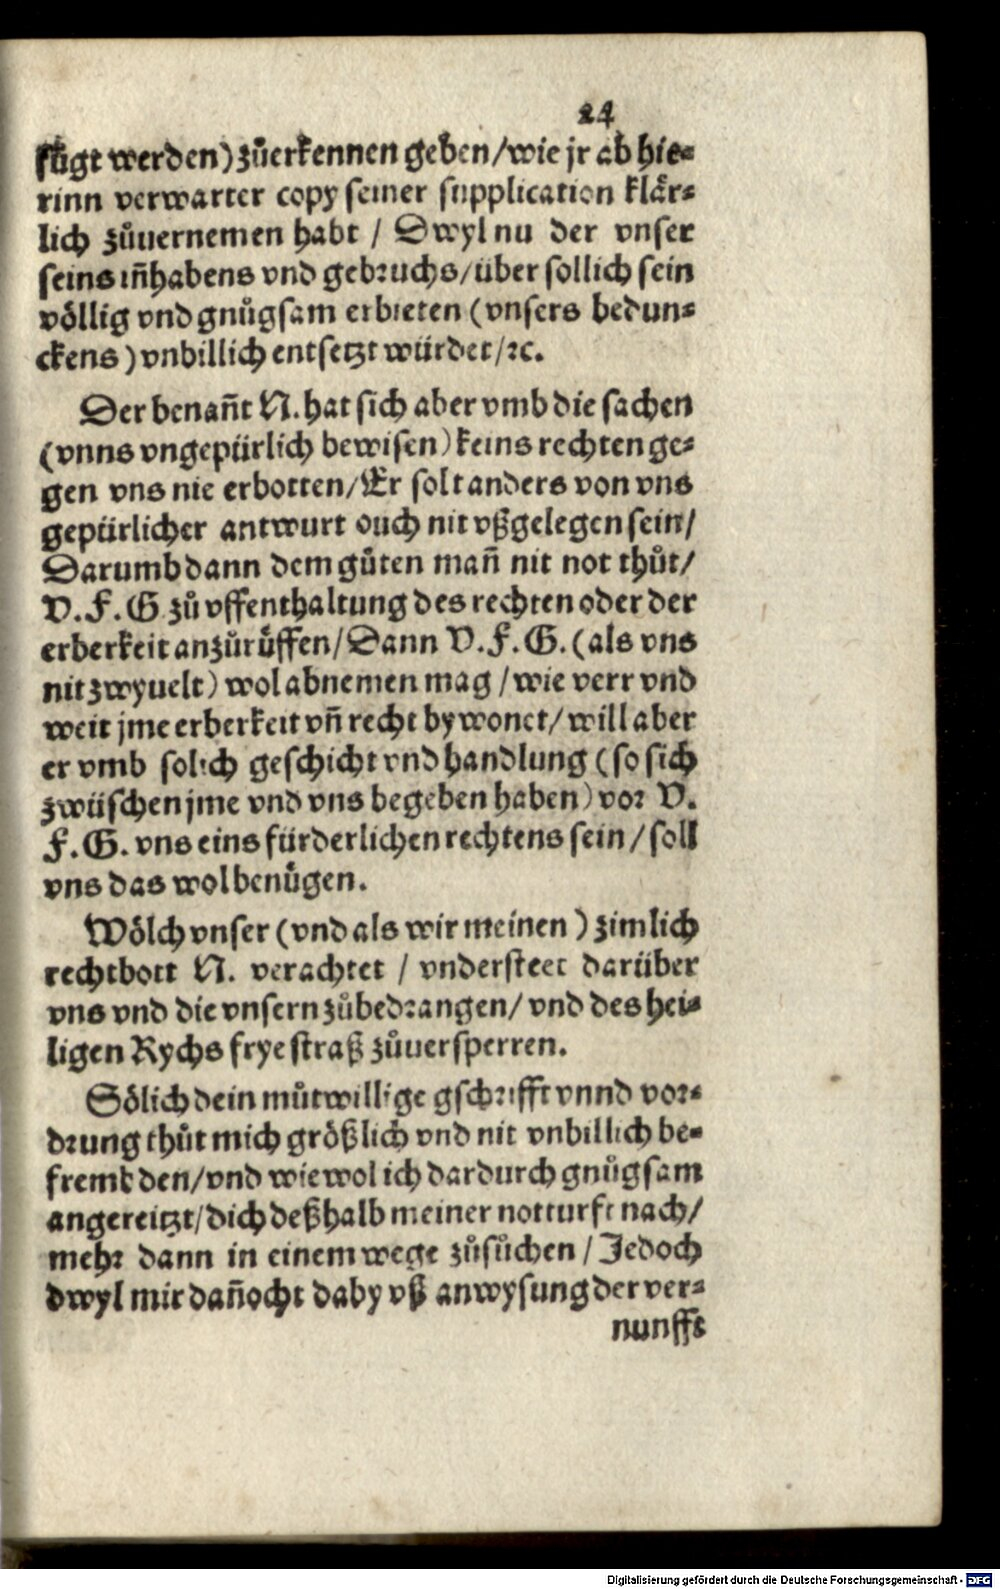 24
fügt werden) zůerkennen geben/wie jr ab hie⸗
rinn verwarter copy seiner supplication klår⸗
lich zůuernemen habt / Dwyl nu der vnser
seins iñhabens vnd gebruchs/über sollich sein
völlig vnd gnůgsam erbieten (vnsers bedun⸗
ckens) vnbillich entsetzt würdet/ꝛc.
Der benañt N. hat sich aber vmb die sachen
(vnns vngepürlich bewisen) keins rechten ge⸗
gen vns nie erbotten/Er solt anders von vns
gepürlicher antwurt ouch nit vßgelegen sein/
Darumb dann dem gůten mañ nit not thůt/
V.F.G zů vffenthaltung des rechten oder der
erberkeit anzůrůffen/Dann V.F.G.(als vns
nit zwyuelt) wol abnemen mag /wie verr vnd
weit jme erberkeit vñ recht bywonet/will aber
er vmb solich geschicht vnd handlung (so sich
zwüschen jme vnd vns begeben haben) vor V.
F.G. vns eins fürderlichen rechtens sein/soll
vns das wol benůgen.
Wölch vnser (vnd als wir meinen) zimlich
rechtbott N. verachtet / vndersteet darüber
vns vnd die vnsern zůbedrangen/ vnd des hei⸗
ligen Rychs frye straß zůuersperren.
Sölich dein můtwillige gschrifft vnnd vor⸗
drung thůt mich größlich vnd nit vnbillich be⸗
frembden/vnd wiewol ich dardurch gnůgsam
angereitzt/dich deßhalb meiner notturft nach/
mehr dann in einem wege zůsůchen/Jedoch
dwyl mir dañocht daby vß anwysung der ver⸗
nunfft
Digitalisierung gefördert durch die Deutsche Forschungsgemeinschaft - DFG